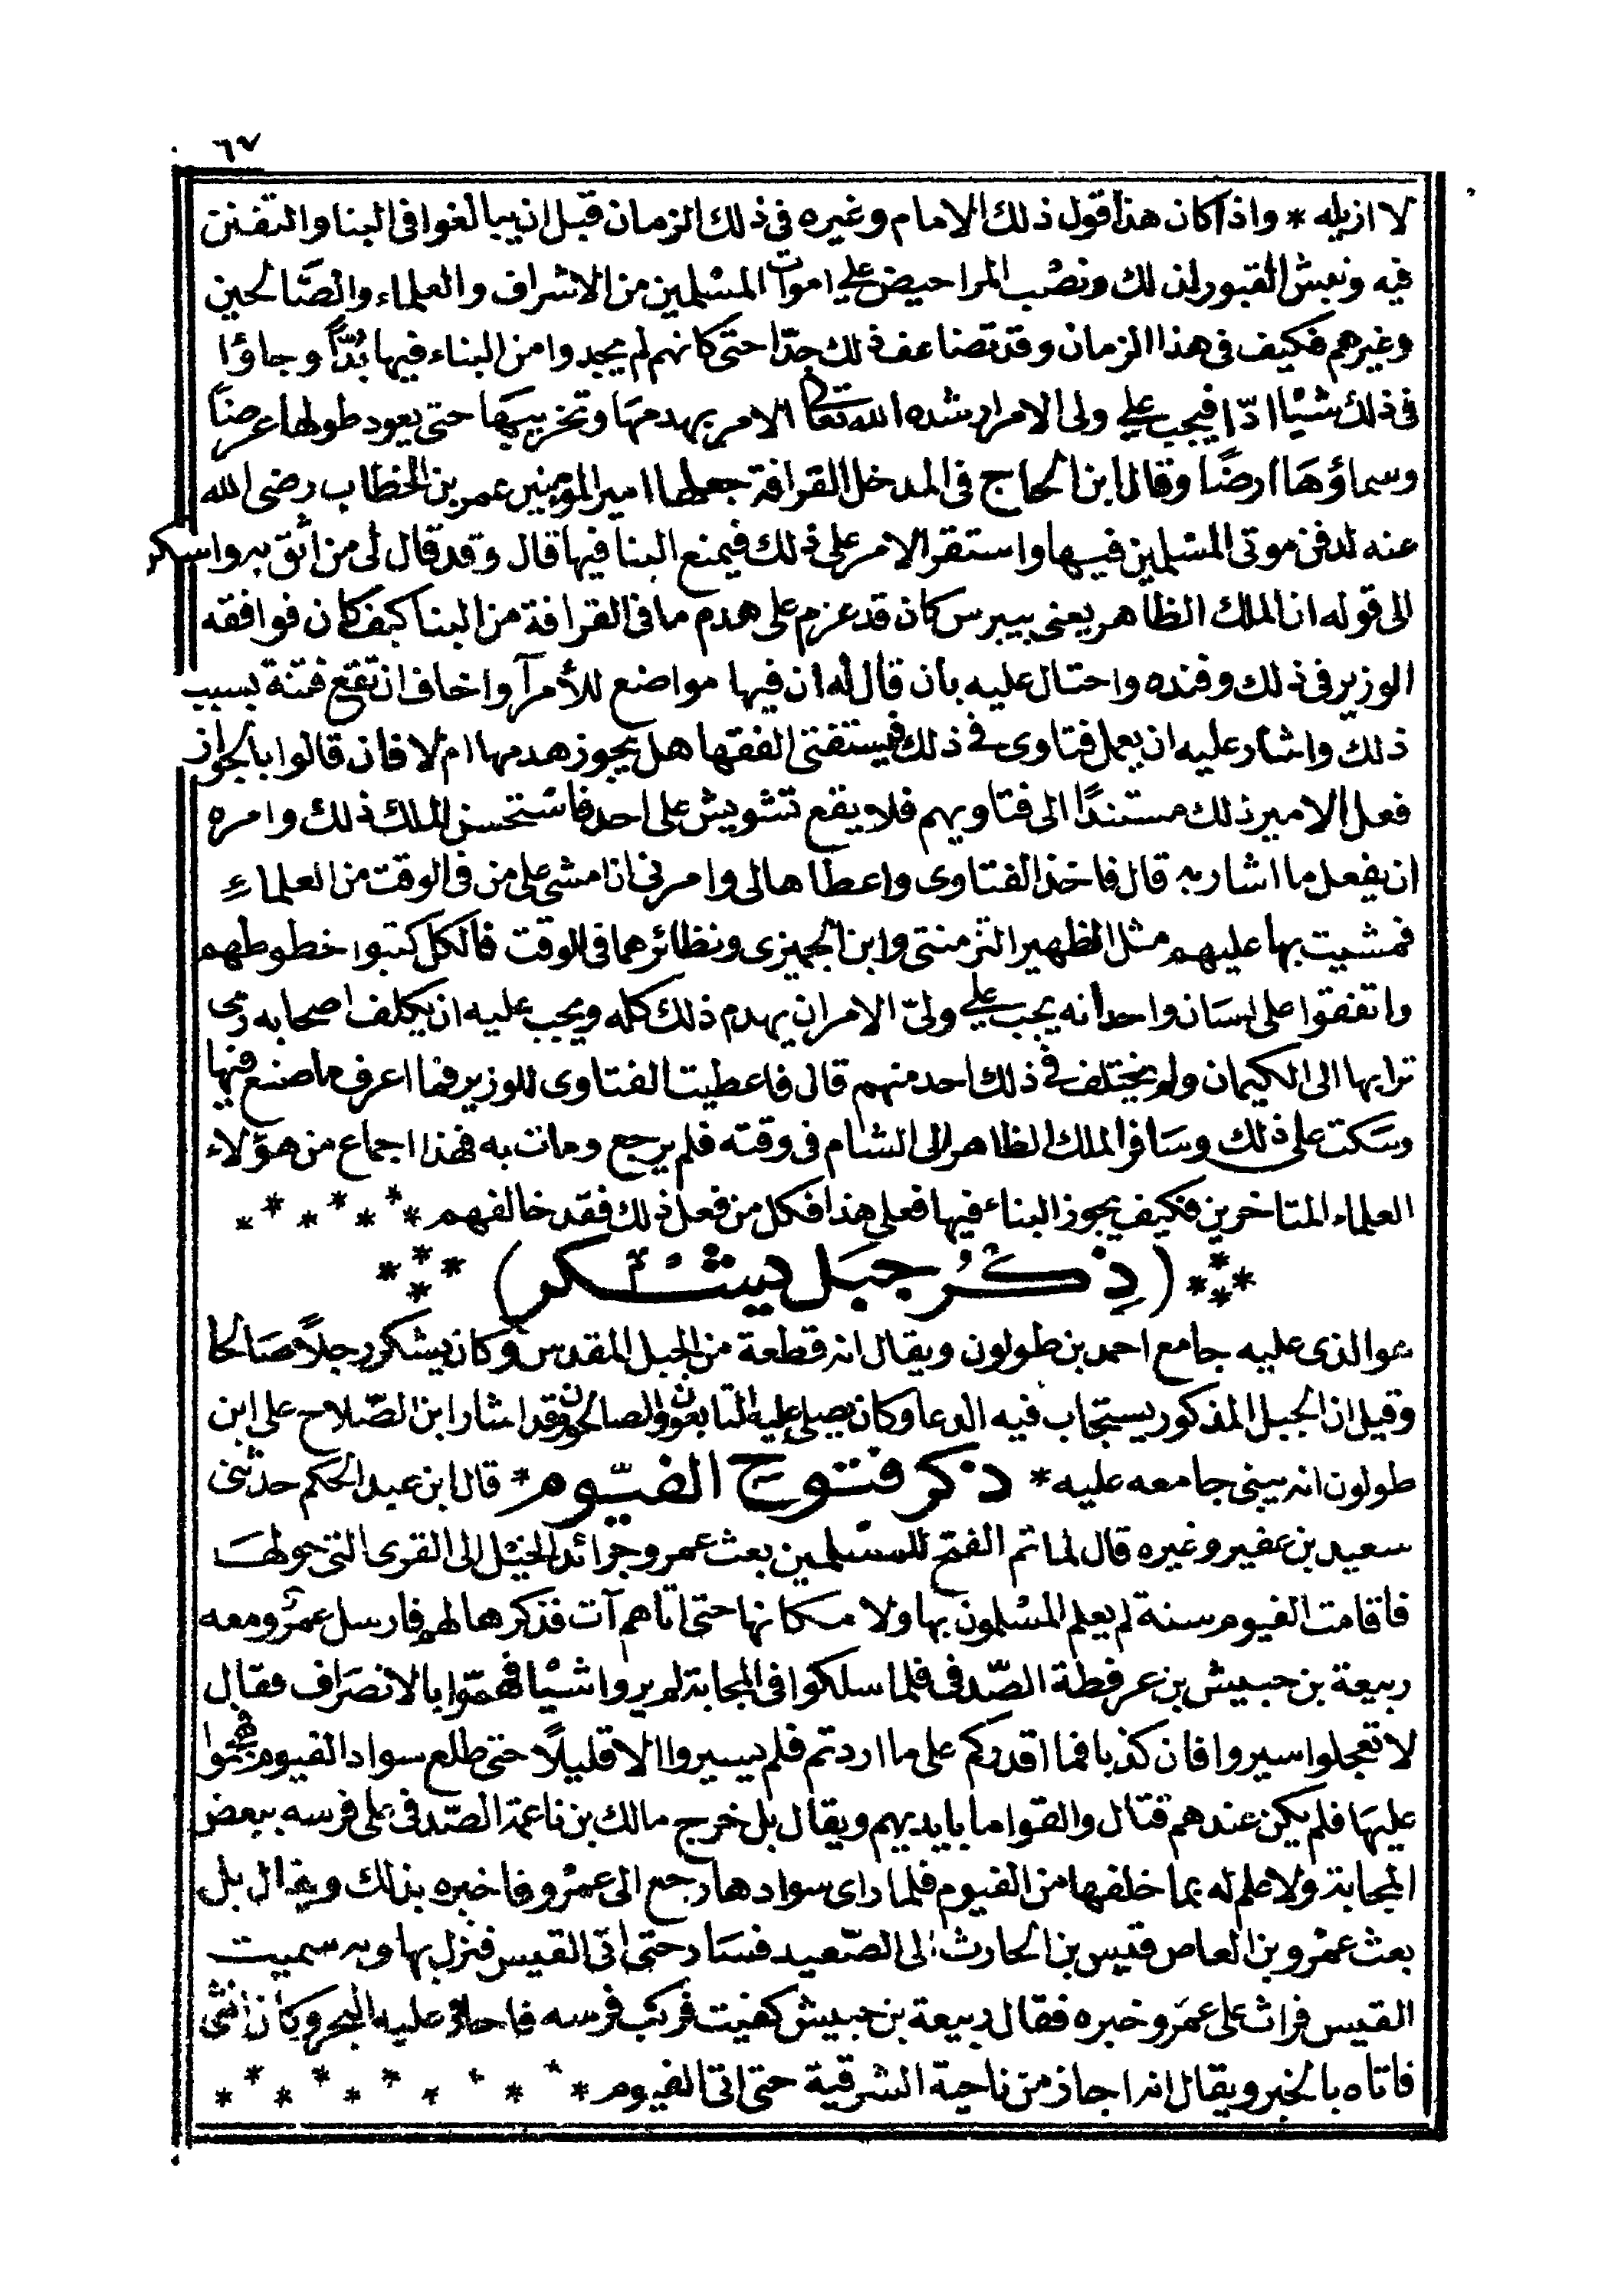 ٦٧
لا ازيله * واذا كان هذا قول ذلك الامام وغيره فى ذلك الزمان قبل ان يبالغوا فى البنا والتفنن
فيه ونبش القبور لذلك ونصب المراحيض على اموات المسلمين من الاشراف والعلماء والصَّالحين
وغيرهم فكيف فى هذا الزمان وقد تضاعف ذلك جدّا حتى كانهم لم يجدوا من البناء فيها بُدًّا وجاؤا
فى ذلك شيئا ادّا فيجب على ولى الامر ارشده الله تعالى الامر بهدمها وتخريبها حتى يعود طولها عرضاً
وسماؤها ارضًا وقال ابن الحاج فى المدخل القرافة جعلها امير المؤمنين عمر بن الخطاب رضى الله
عنه لدفن موتى المسلمين فيها واستقر الامر على ذلك فيمنع البنا فيها قال وقد قال لى من اثق به واسكن
الى قوله ان الملك الظاهر يعنى بيبرس كان قد عزم على هدم ما فى القرافة من البنا كيف كان فوافقه
الوزير فى ذلك وفنده واحتال عليه بان قال له ان فيها مواضع للأمرآ واخاف ان تقع فتنة بسبب
ذلك واشار عليه ان يعمل فتاوى فى ذلك فيستفتى الفقها هل يجوز هدمها ام لا فان قالوا بالجواز
فعل الامير ذلك مستندًا الى فتاويهم فلا يقع تشويش على احد فاستحسن الملك ذلك وامره
ان يفعل ما اشار به قال فاخذ الفتاوى واعطاها لى وامرنى ان امشى على من فى الوقت من العلماء
فمشيت بها عليهم مثل الظهير التزمنتى وابن الجميزى ونظائرهما فى الوقت فالكل كتبوا خطوطهم
واتفقوا على لسان واحد أنه يجب على ولىّ الامر ان يهدم ذلك كله ويجب عليه ان يكلف اصحابه رمى
ترابها الى الكيمان ولم يختلف فى ذلك احد منهم قال فاعطيت الفتاوى للوزير فما اعرف ما صنع فيها
وسكت على ذلك وسافر الملك الظاهر الى الشام فى وقته فلم يرجع ومات به فهذا اجماع من هؤلاء
العلماء المتاخرين فكيف يجوز البناء فيها فعلى هذا فكل من فعل ذلك فقد خالفهم * * * * * *
* * * * (ذكر جبل يشكر) * * * *
هو الذى عليه جامع احمد بن طولون ويقال انه قطعة من الجبل المقدس وكان يشكر رجلاً صالحا
وقيل ان الجبل المذكور يستجاب فيه الدعا وكان يصلى عليه التابعون والصالحون وقد اشار ابن الصّلاح على ابن
طولون انه يبنى جامعه عليه * ذكر فتوح الفيّوم * قال ابن عبد الحكم حدثنى
سعيد بن عفير وغيره قال لما تم الفتح للمسلمين بعث عمرو جرائد الخيل الى القرى التى حولها
فاقامت الفيوم سنة لم يعلم المسلمون بها ولا مكانها حتى اتاهم آت فذكرها لهم فارسل عمرو معه
ربيعة بن حبيش بن عرفطة الصّدفى فلما سلكوا فى المجابة لم يروا شيئا فهمّوا بالانصراف فقال
لا تعجلوا سيروا فان كذبا فما اقدركم على ما اردتم فلم يسيروا الا قليلاً حتى طلع سواد الفيوم فهجموا
عليها فلم يكن عندهم قتال والقوا ما بايديهم ويقال بل خرج مالك بن ناعمة الصّدفى على فرسه ببعض
المجابة ولا علم له بما خلفها من الفيوم فلما راى سوادها رجع الى عمرو فاخبره بذلك ويقال بل
بعث عمرو بن العاص قيس بن الحارث الى الصّعيد فسار حتى اتى القيس فنزل بها وبه سميت
القيس فراث على عمرو خبره فقال ربيعة بن حبيش كفيت فركب فرسه فاجاز عليه البحر وكان انثى
فاتاه بالخبر ويقال انه اجاز من ناحية الشرقية حتى اتى الفيوم * * * * * * * * * *